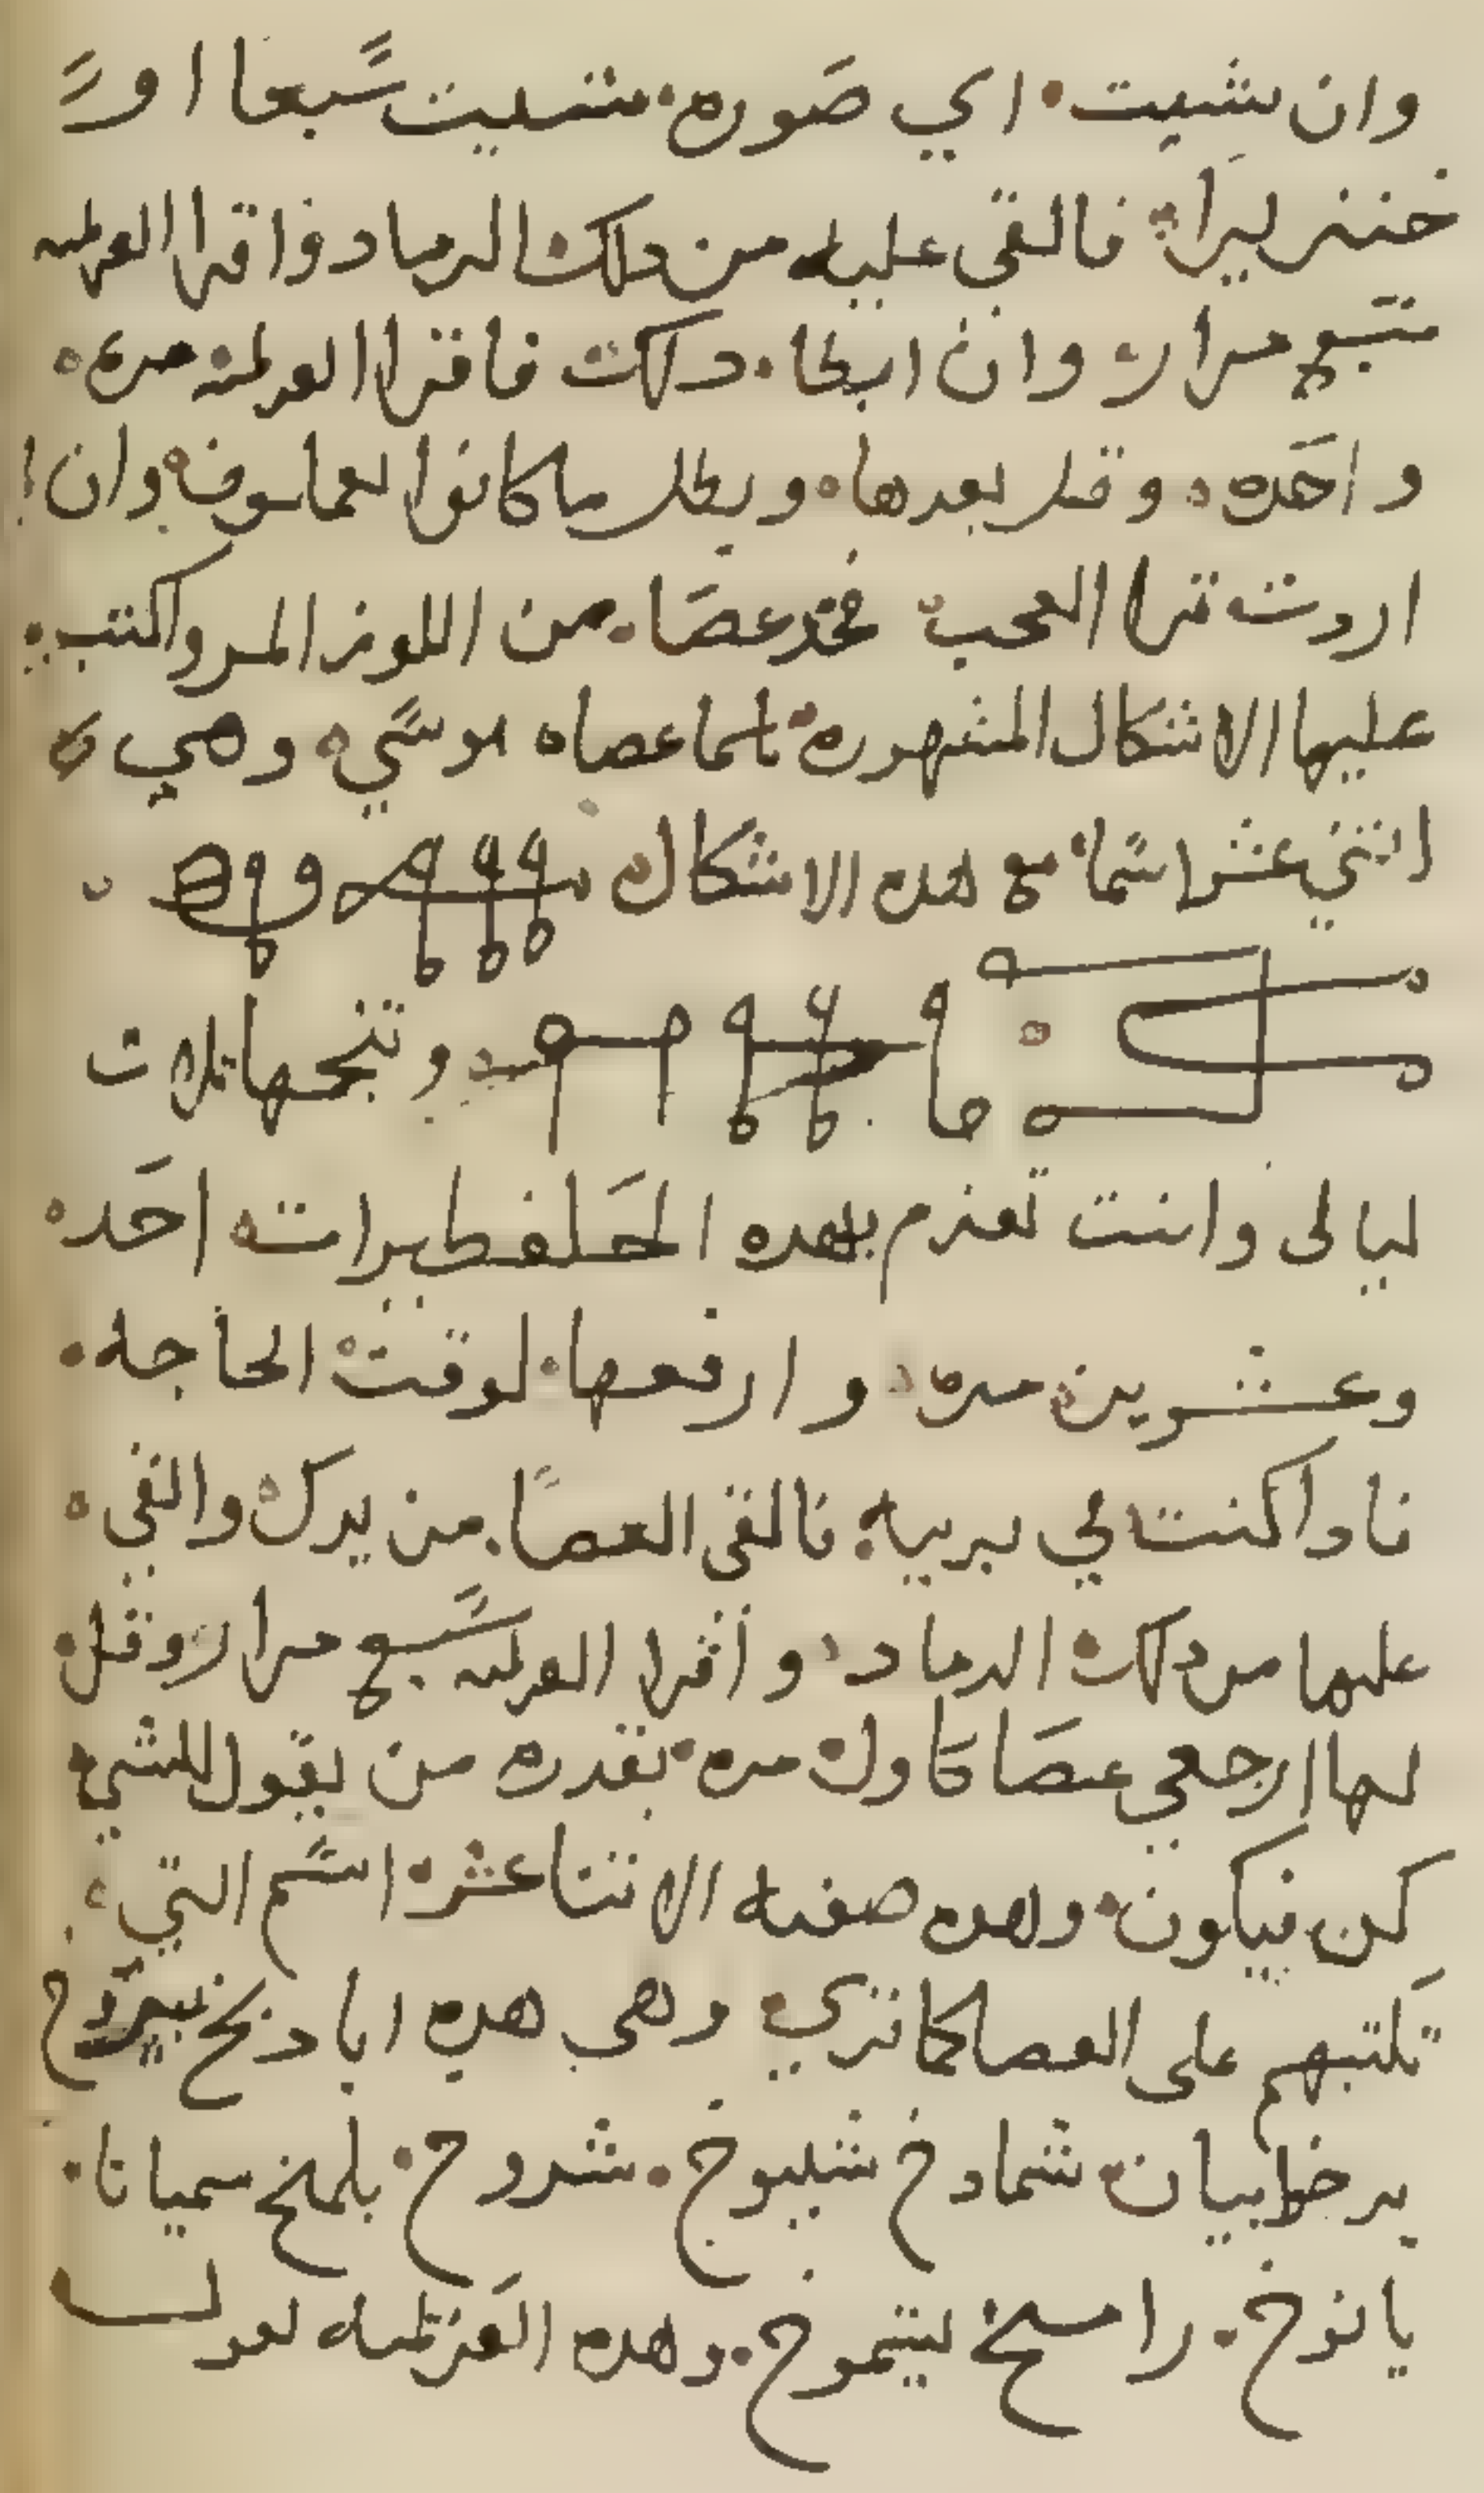 وان شيت اي صَوره شيت سًبعا او
خنزيرا فالقي عليه من دلك الرماد واقرا العزيمه
سبع مرار وان ابطا دلك فاقرا العزيمه مره
واحَده وقل بعدها وبطل ما كانوا يعملون وان
اردت ترا العجب فخد عصَا من اللوز المر واكتب
عليها الاشكال المشهوره باسما عصاه موسًي وهي
اثني عشر اسًما مع هده الاشكال
وتنجمها ثلاث
ليالى وانت تعزم بهده احَده
وعشرين مره وارفعها لوقت الحاجه
فادا كنت في بريه فالقى العصًا من يدك والقي
عليها من دلك الرماد واقرا العزيمه سًبع مرار وقل
لها ارجعي عصَا كاول مره بقدره من يقول للشي
كن فيكون وهده صفه الاثنا عشر اسًم التي
تكتبهم على العصا كما تري وهي هده اباديخ
يرخا بيان شمادخ شليوخ شروخ بلملخ سميانا
يانوخ راسخ ليتموخ وهده العَزيمه